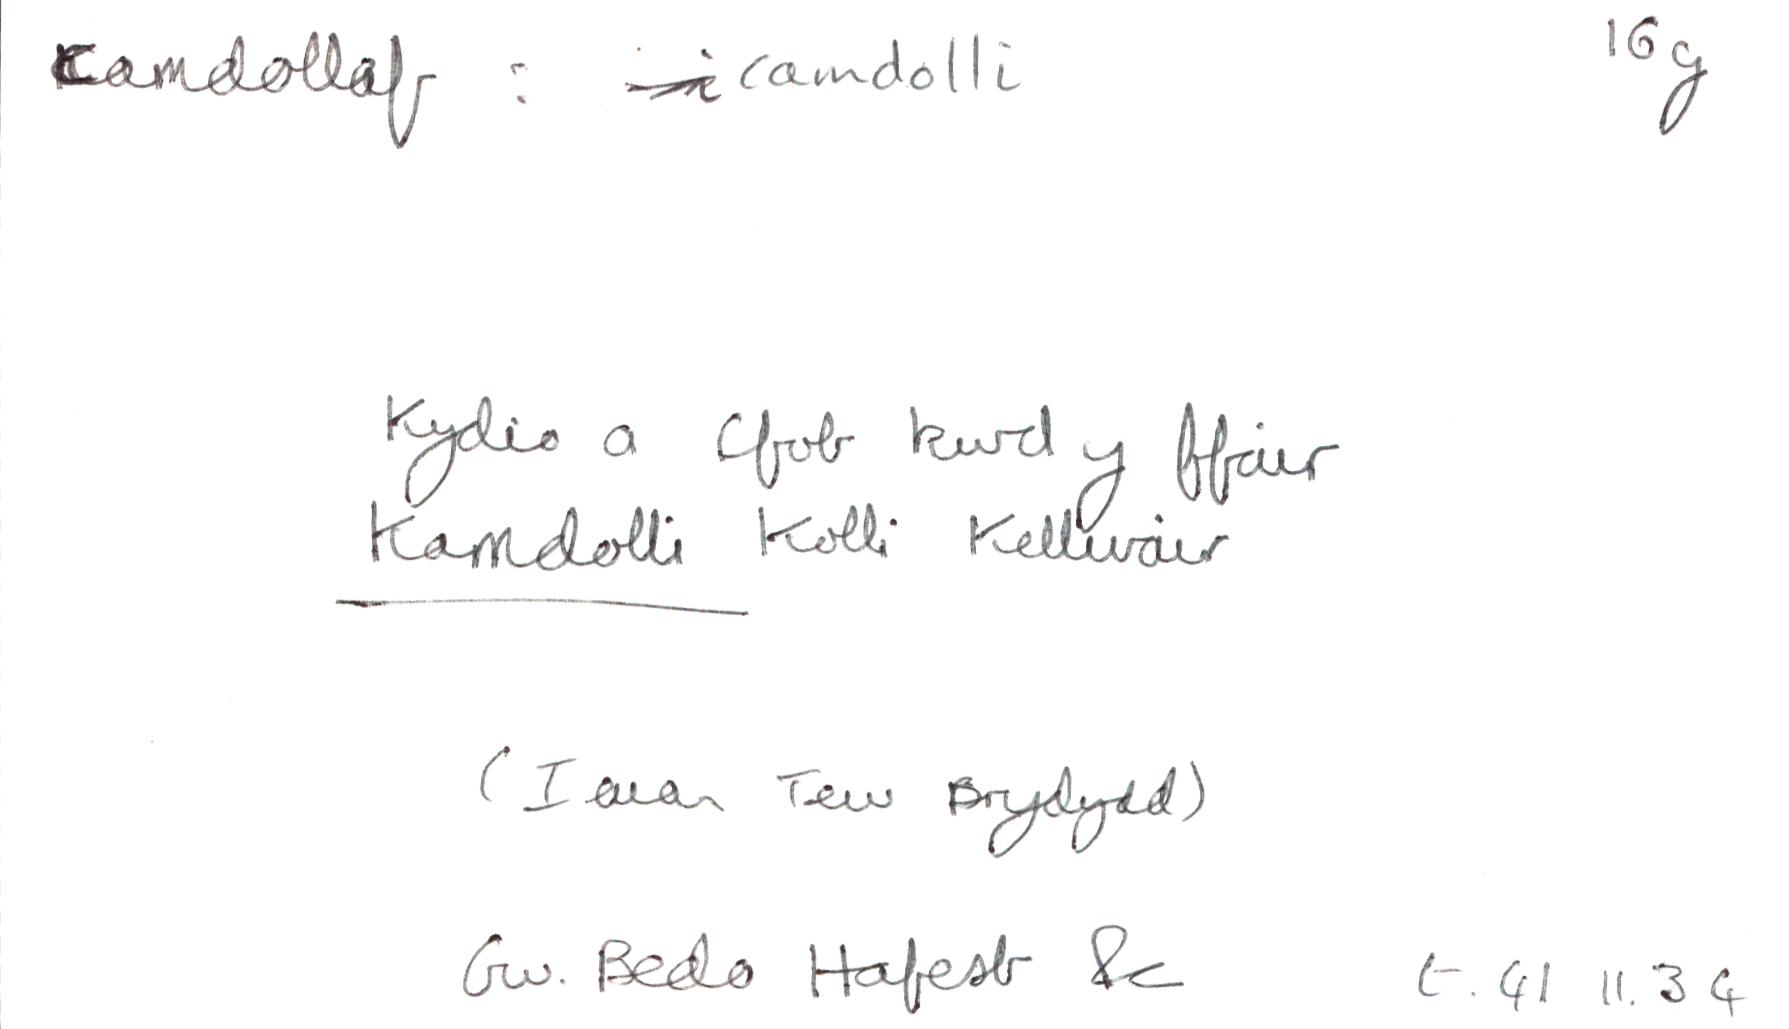 camdollaf : camdolli 16g
Kydio a ffob kwd y ffair
Kamdolli Kolli Kellwair
(Ieuan Tew Brydydd)
Gw. Bedo Hafesb &c t. 41 ll. 34